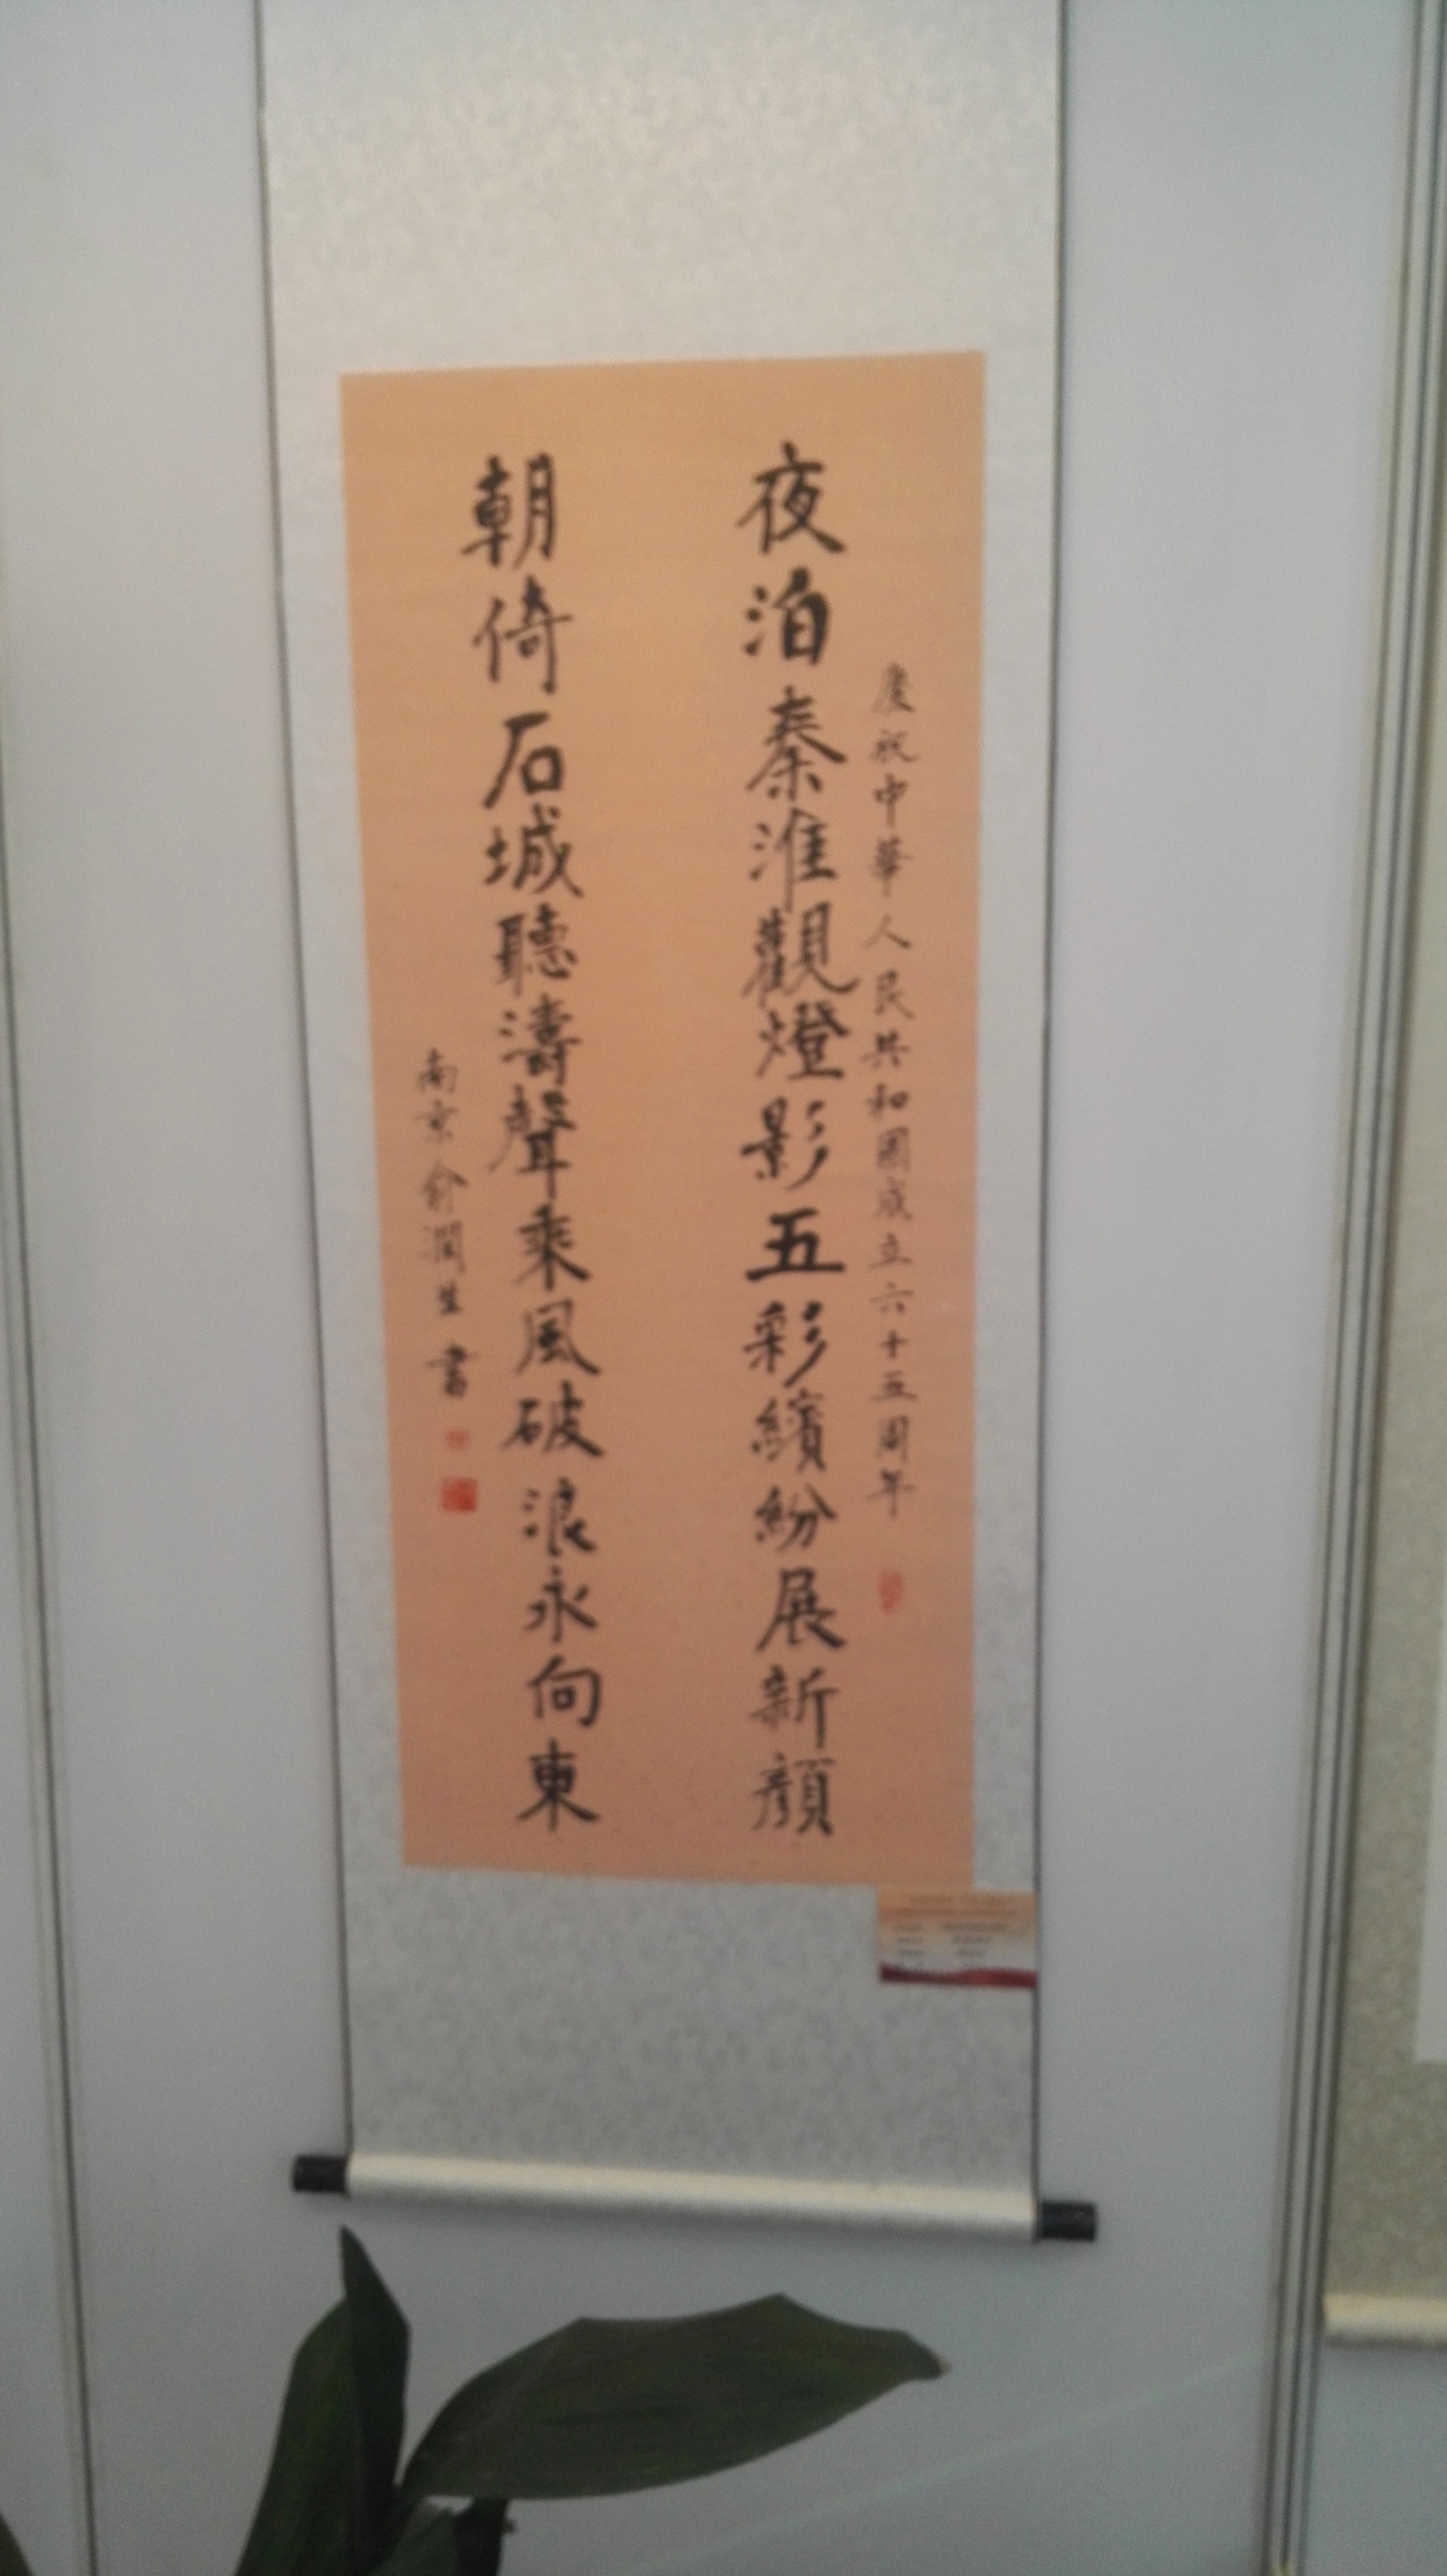 慶祝中華人民共和國成立六十五周年
夜泊秦淮觀燈影五彩繽紛展新顏
朝倚石城聽濤聲乘風破浪永向東
南京俞潤生書